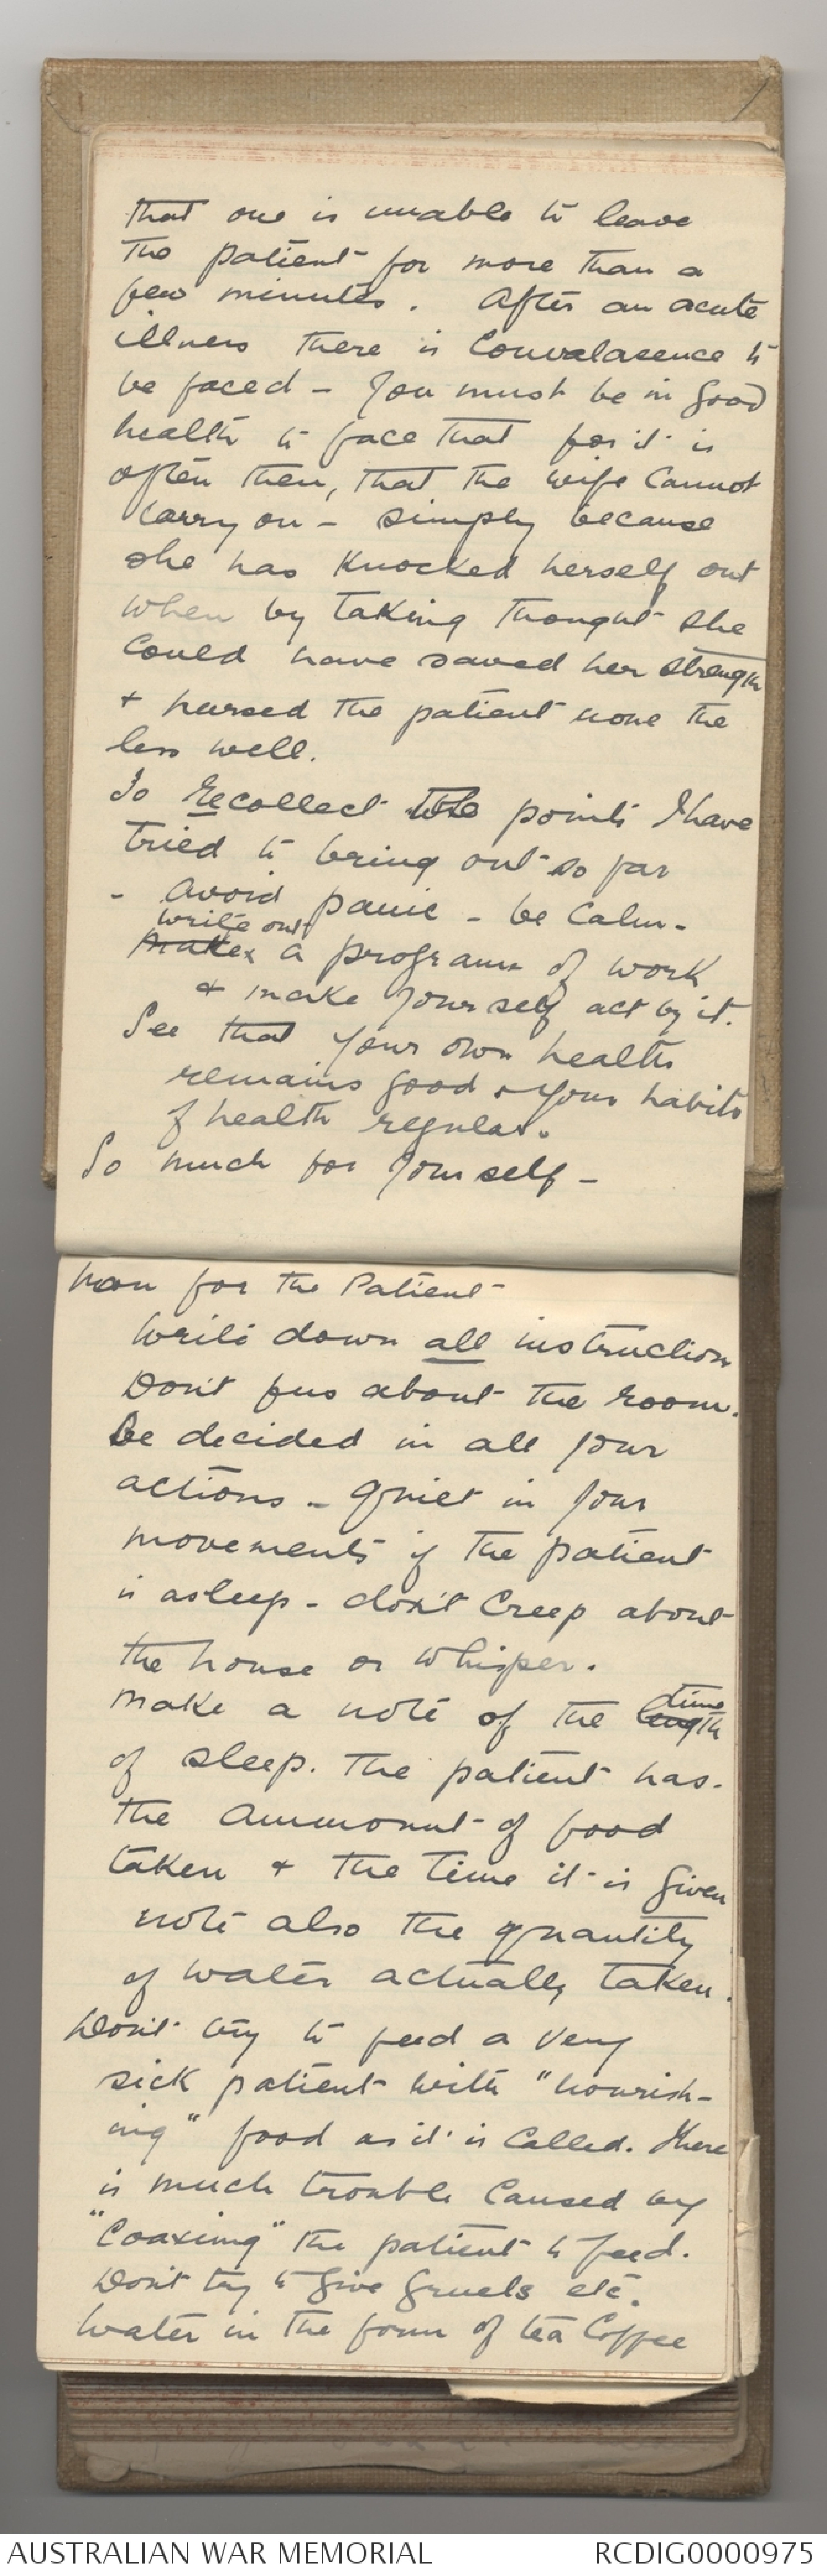 that one is unable to leave
the patient for more than a
few minutes. After an acute
illness there is Convalasence to
be faced – You must be in good
health to face that for it is
often then, that the wife Cannot
Carry on – simply because
she has Knocked herself out
when by taking thought she
Could have saved her strength
+ nursed the patient none the
less well.
To recollect the points I have
tried to bring out so far
- avoid panic – be Calm –
write out
makex a programm of work
+ make yourself act by it.
See that your own health
remains good + your habits
of health regular.
So much for yourself –
Now for the Patient
Write down all instructions
Don't fuss about the room.
Be decided in all your
actions – quiet in your
movements if the patient
is asleep – don't Creep about
the house or whisper.
Make a note of the length time
of sleep. The patient has.
the ammount of food
taken + the time it is given
note also the quantity
of water actually taken.
Don't try to feed a very
sick patient with "nourish-
ing" food as it is Called. There
is much trouble Caused by
"Coaxing" the patient to feed.
Don't try to give gruels etc.
Water in the form of tea Coffee
AUSTRALIAN WAR MEMORIAL
RCDIG0000975